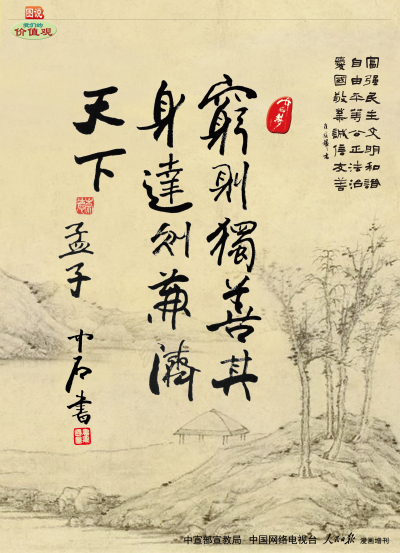 图说
我们的
价值观
富强民主文明和諧
自由平等公正法治
愛國敬業誠信友善
中国梦
窮則獨善其
身達则兼濟
天下
孟子
中石書
中宣部宣教局 中国网络电视台 人民日报 漫画增刊